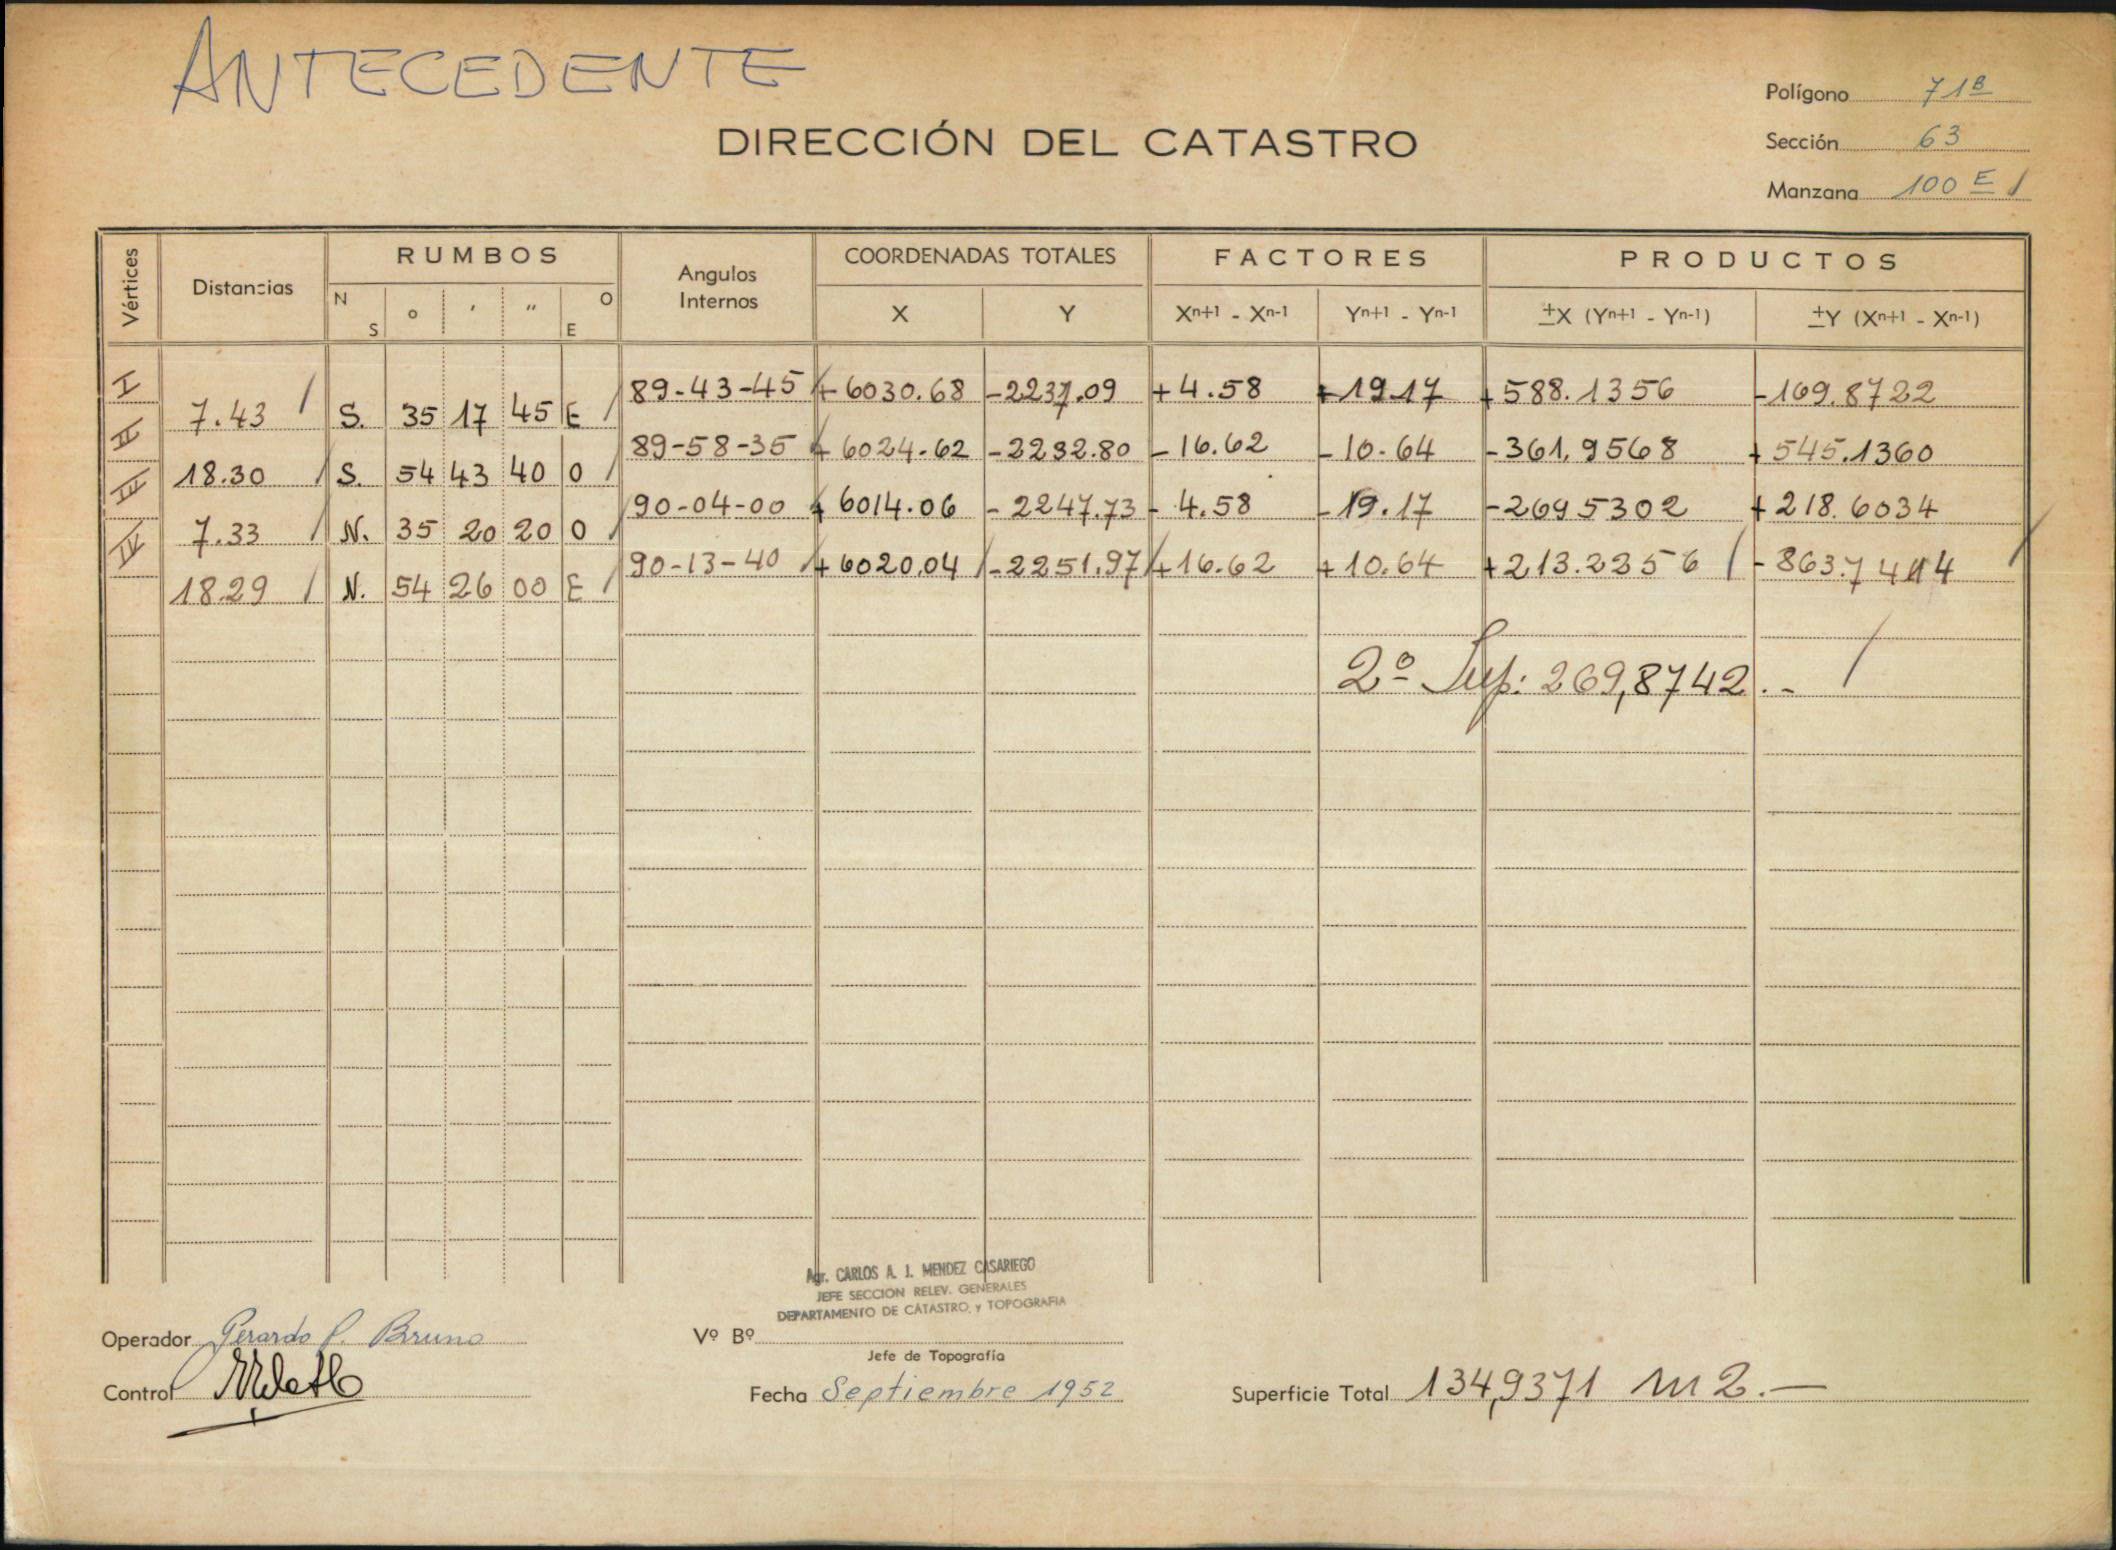 ANTECEDENTE
DIRECCIÓN DEL CATASTRO
Polígono 71 B
Sección 63
Manzana 100 E /
Vértices Distancias RUMBOS Angulos Internos COORDENADAS TOTALES FACTORES PRODUCTOS
N S o ' " O E X Y Xn+1 - Xn-1 Yn+1 - Yn-1 ±X (Yn+1 - Yn-1) ±Y (Xn+1 - Xn-1)
I 89-43-45 + 6030.68 -2237.09 +4.58 +19.17 +588.1356 -169.8722
7.43 / S. 35 17 45 E /
II 89-58-35 + 6024.62 -2232.80 -16.62 -10.64 -361.9568 +545.1360
18.30 / S. 54 43 40 O /
III 90-04-00 + 6014.06 -2247.73 -4.58 -19.17 -2695302 +218.6034
7.33 / N. 35 20 20 O /
IV 90-13-40 / +6020.04 / -2251.97 / +16.62 +10.64 +213.2256 / -863.7414 /
18.29 / N. 54 26 00 E /
2º Sup: 269,8742.- /
Agr. CARLOS A. J. MENDEZ CASARIEGO
JEFE SECCION RELEV. GENERALES
DEPARTAMENTO DE CATASTRO y TOPOGRAFIA
Operador Gerardo P. Bruno
Vº Bº
Jefe de Topografía
Control
Fecha Septiembre 1952
Superficie Total 134,9371 m2.—